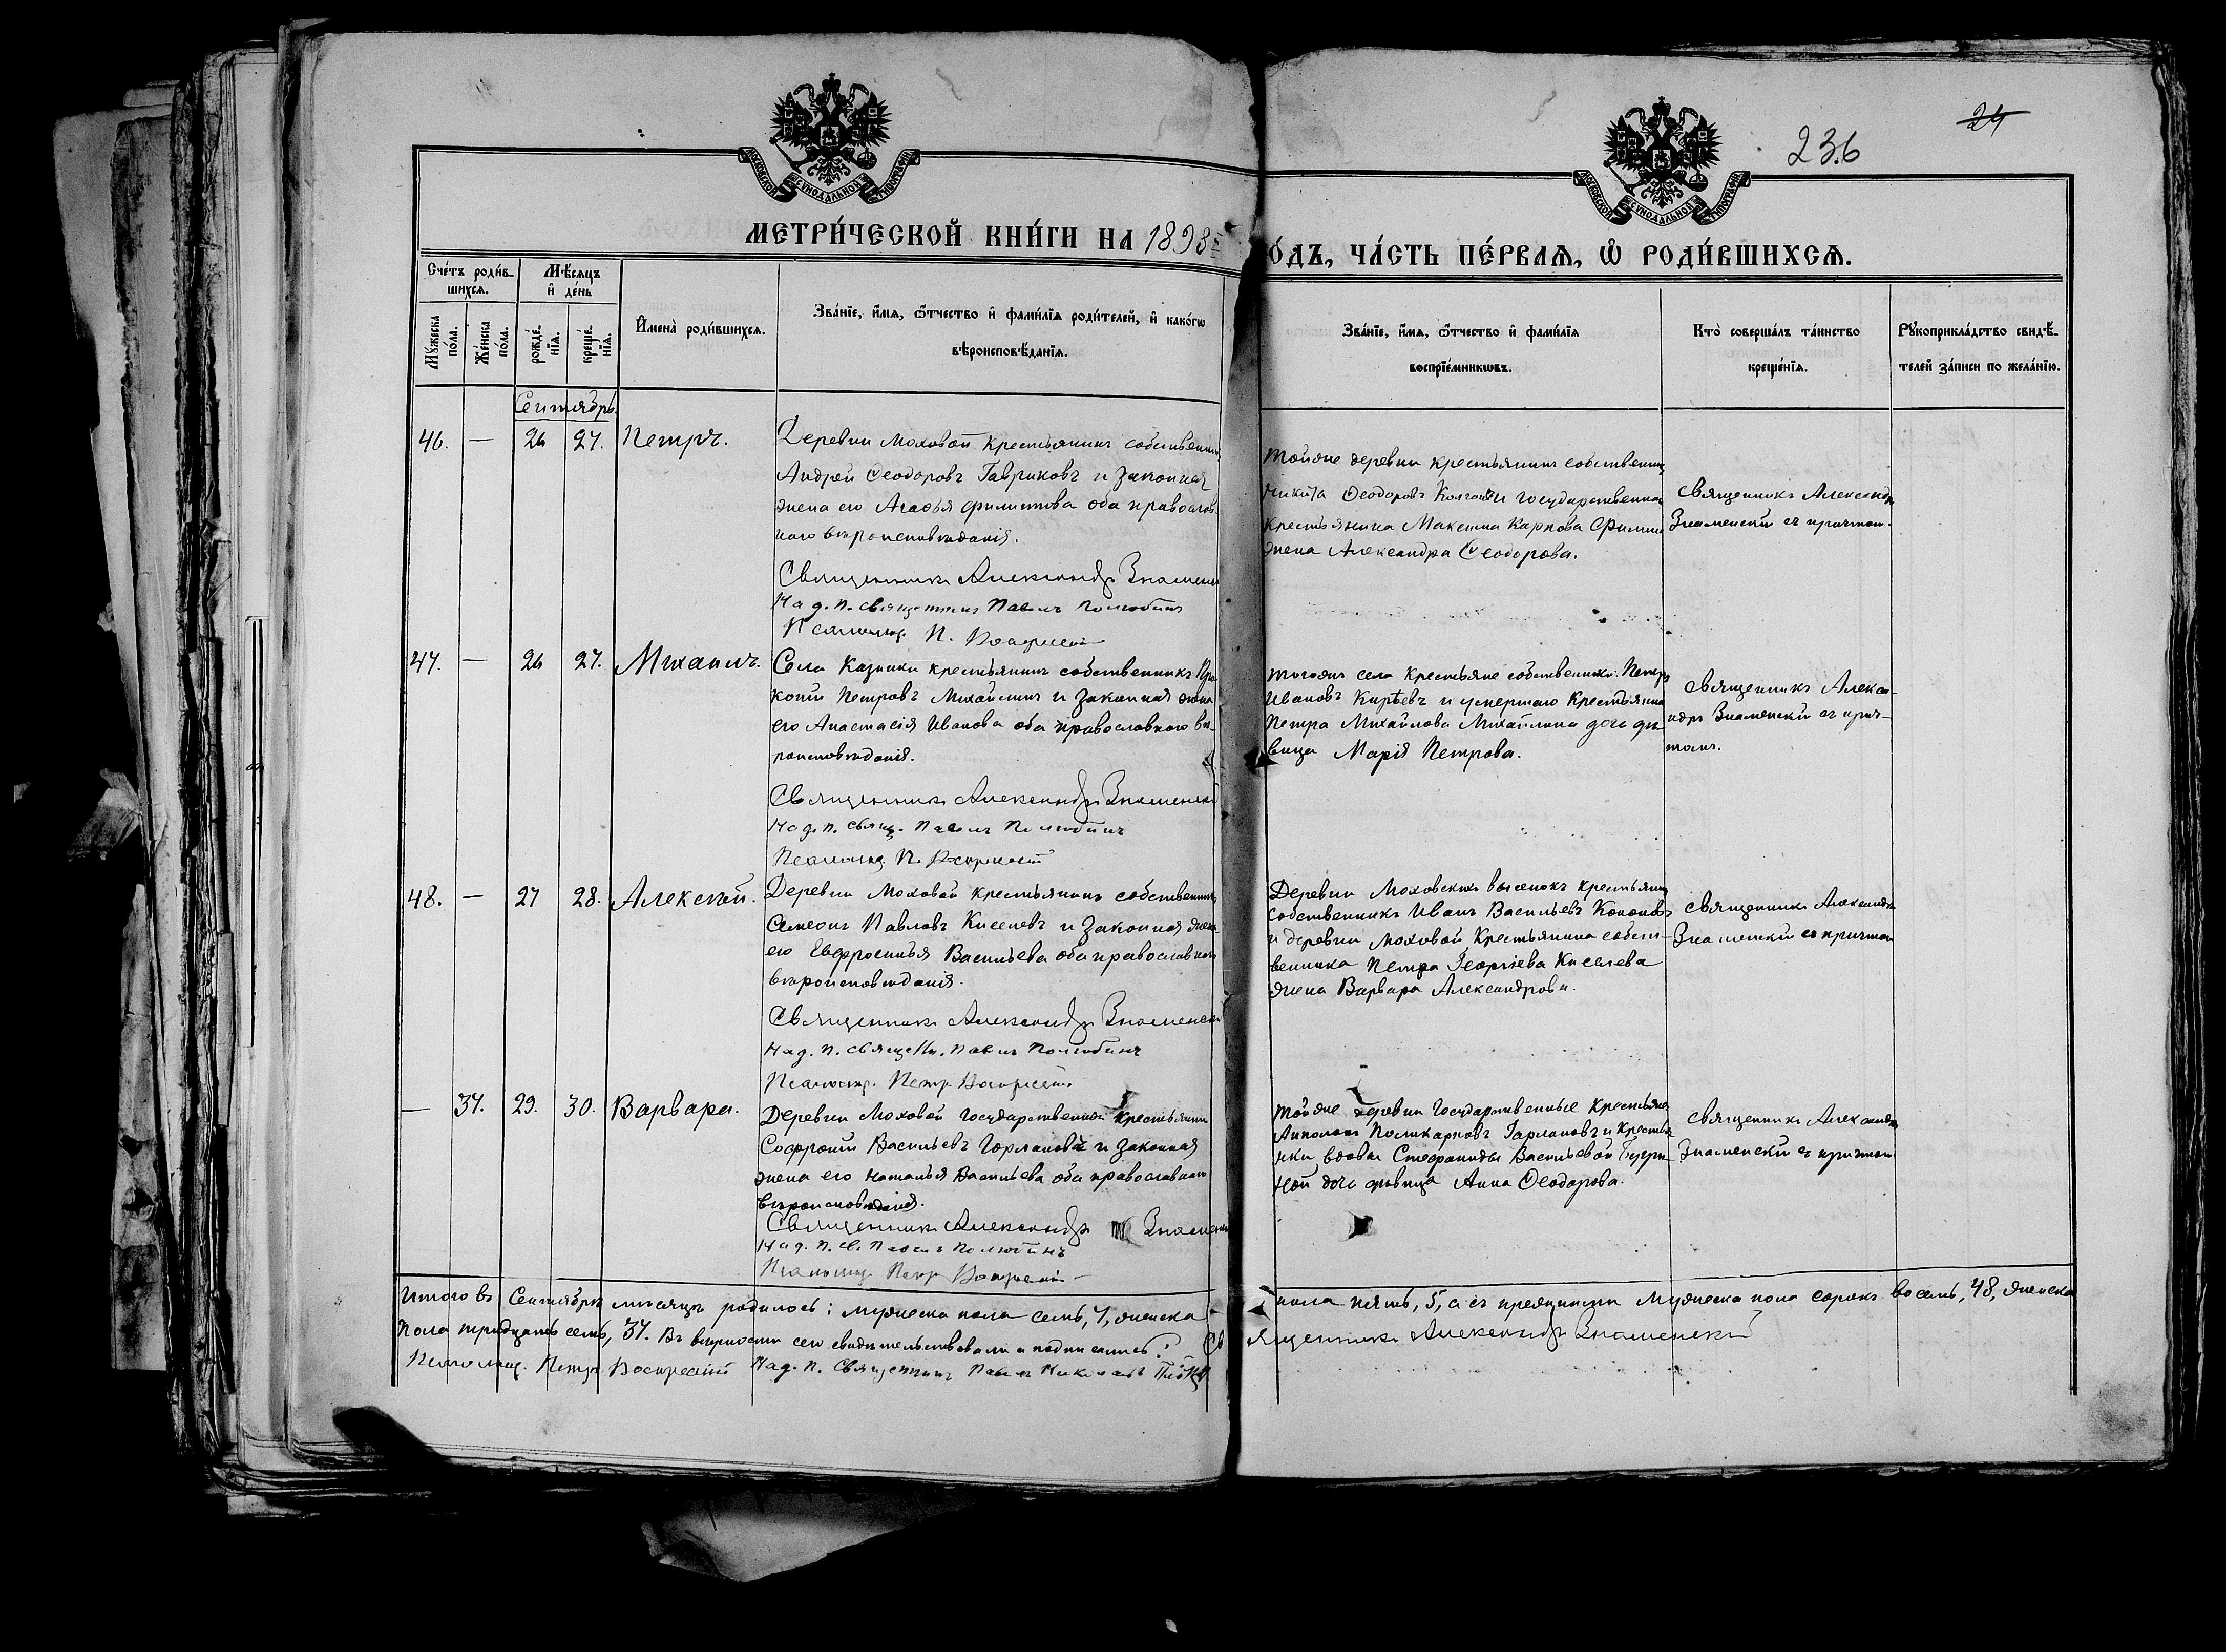 24
236
МОСКОВСКОЙ СѴНОДАЛЬНОЙ ТИПОГРАФІИ
МОСКОВСКОЙ СѴНОДАЛЬНОЙ ТИПОГРАФІИ
МЕТРИ́ЧЕСКОЙ КНИ́ГИ НА 1898 О́ДЪ, ЧА́СТЬ ПЕ́РВАѦ, Ѡ҆ РОДИ́ВШИХСѦ.
Сче́тъ роди́в-
шихсѧ.
Мѣ́сѧцъ
и҆ де́нь
Мꙋ́жеска
по́ла.
Же́нска
по́ла.
рожде́-
нїѧ.
креще́-
нїѧ.
И҆мена̀ роди́вшихсѧ.
Зва́нїе, и҆́мѧ, ѻ҆́тчество и҆ фами́лїѧ роди́телей, и҆ како́гѡ
вѣроисповѣ́данїѧ.
Зва́нїе, и҆́мѧ, ѻ҆́тчество и҆ фами́лїѧ
воспрїе́мникѡвъ.
Кто̀ соверша́лъ та́инство
креще́нїѧ.
Рꙋкоприкла́дство свидѣ́-
телей за́писи по жела́нїю.
Сентябрь.
46. — 26 27. Петръ.
Деревни Моховой крестьянинъ собственникъ
Андрей Ѳеодоровъ Гавриковъ и законная
жена его Агаѳья Филиппова оба православ-
наго вѣроисповѣданія.
Священникъ Александръ Знаменскій
На д. п. священникъ Павелъ
Псаломщ. П. Воскресен
Той же деревни крестьянинъ собственникъ
Никита Ѳеодоровъ и государственнаго
крестьянина Максима Карпова
жена Александра Ѳеодорова.
Священникъ Александръ
Знаменскій съ причтомъ.
47. — 26 27. Михаилъ.
Села Казинки крестьянинъ собственникъ Про-
копій Петровъ Михайлинъ и законная жена
его Анастасія Иванова оба православнаго вѣ-
роисповѣданія.
Священникъ Александръ Знаменскій
На д. п. свящ. Павелъ
Псаломщ. П. Воскресен
Того же села крестьяне собственники: Петръ
Ивановъ Кирѣевъ и умершаго крестьянина
Петра Михайлова Михайлина дочь дѣ-
вица Марія Петрова.
Священникъ Алекса-
ндръ Знаменскій съ прич-
томъ.
48. — 27 28. Алексѣй.
Деревни Моховой крестьянинъ собственникъ
Симеонъ Павловъ Киселевъ и законная жена
его Евфросинья Васильева оба православнаго
вѣроисповѣданія.
Священникъ Александръ Знаменскій
На д. п. священ. Павелъ
Псаломщ. Петръ Воскресен
Деревни Моховскихъ выселокъ крестьянинъ
собственникъ Иванъ Васильевъ Кононовъ
и деревни Моховой крестьянина собст-
венника Петра Георгіева Киселева
жена Варвара Александрова.
Священникъ Александръ
Знаменскій съ причтомъ
— 37. 29. 30. Варвара.
Деревни Моховой государственный крестьянинъ
Софроній Васильевъ Горлановъ и законная
жена его Наталья Васильева оба православнаго
вѣроисповѣданія.
Священникъ Александръ Знаменскій
На д. п. св. Павелъ
Псаломщ. Петръ Воскресен
Той же деревни государственные крестьяне
Поликарповъ Гарлановъ и крестья-
нки вдовы Стефаниды Васильевой
дочь дѣвица Анна Ѳеодорова.
Священникъ Александръ
Знаменскій съ причтомъ
Итого въ Сентябрѣ мѣсяцѣ родилось: мужеска пола семь, 7, женска пола пять, 5, а съ прежними мужеска пола сорокъ восемь, 48, женска
пола тридцать семь, 37. Въ вѣрности сего свидѣтельствовали и подписались: Священникъ Александръ Знаменскій
Псаломщ. Петръ Воскресен На д. п. Священникъ Павелъ